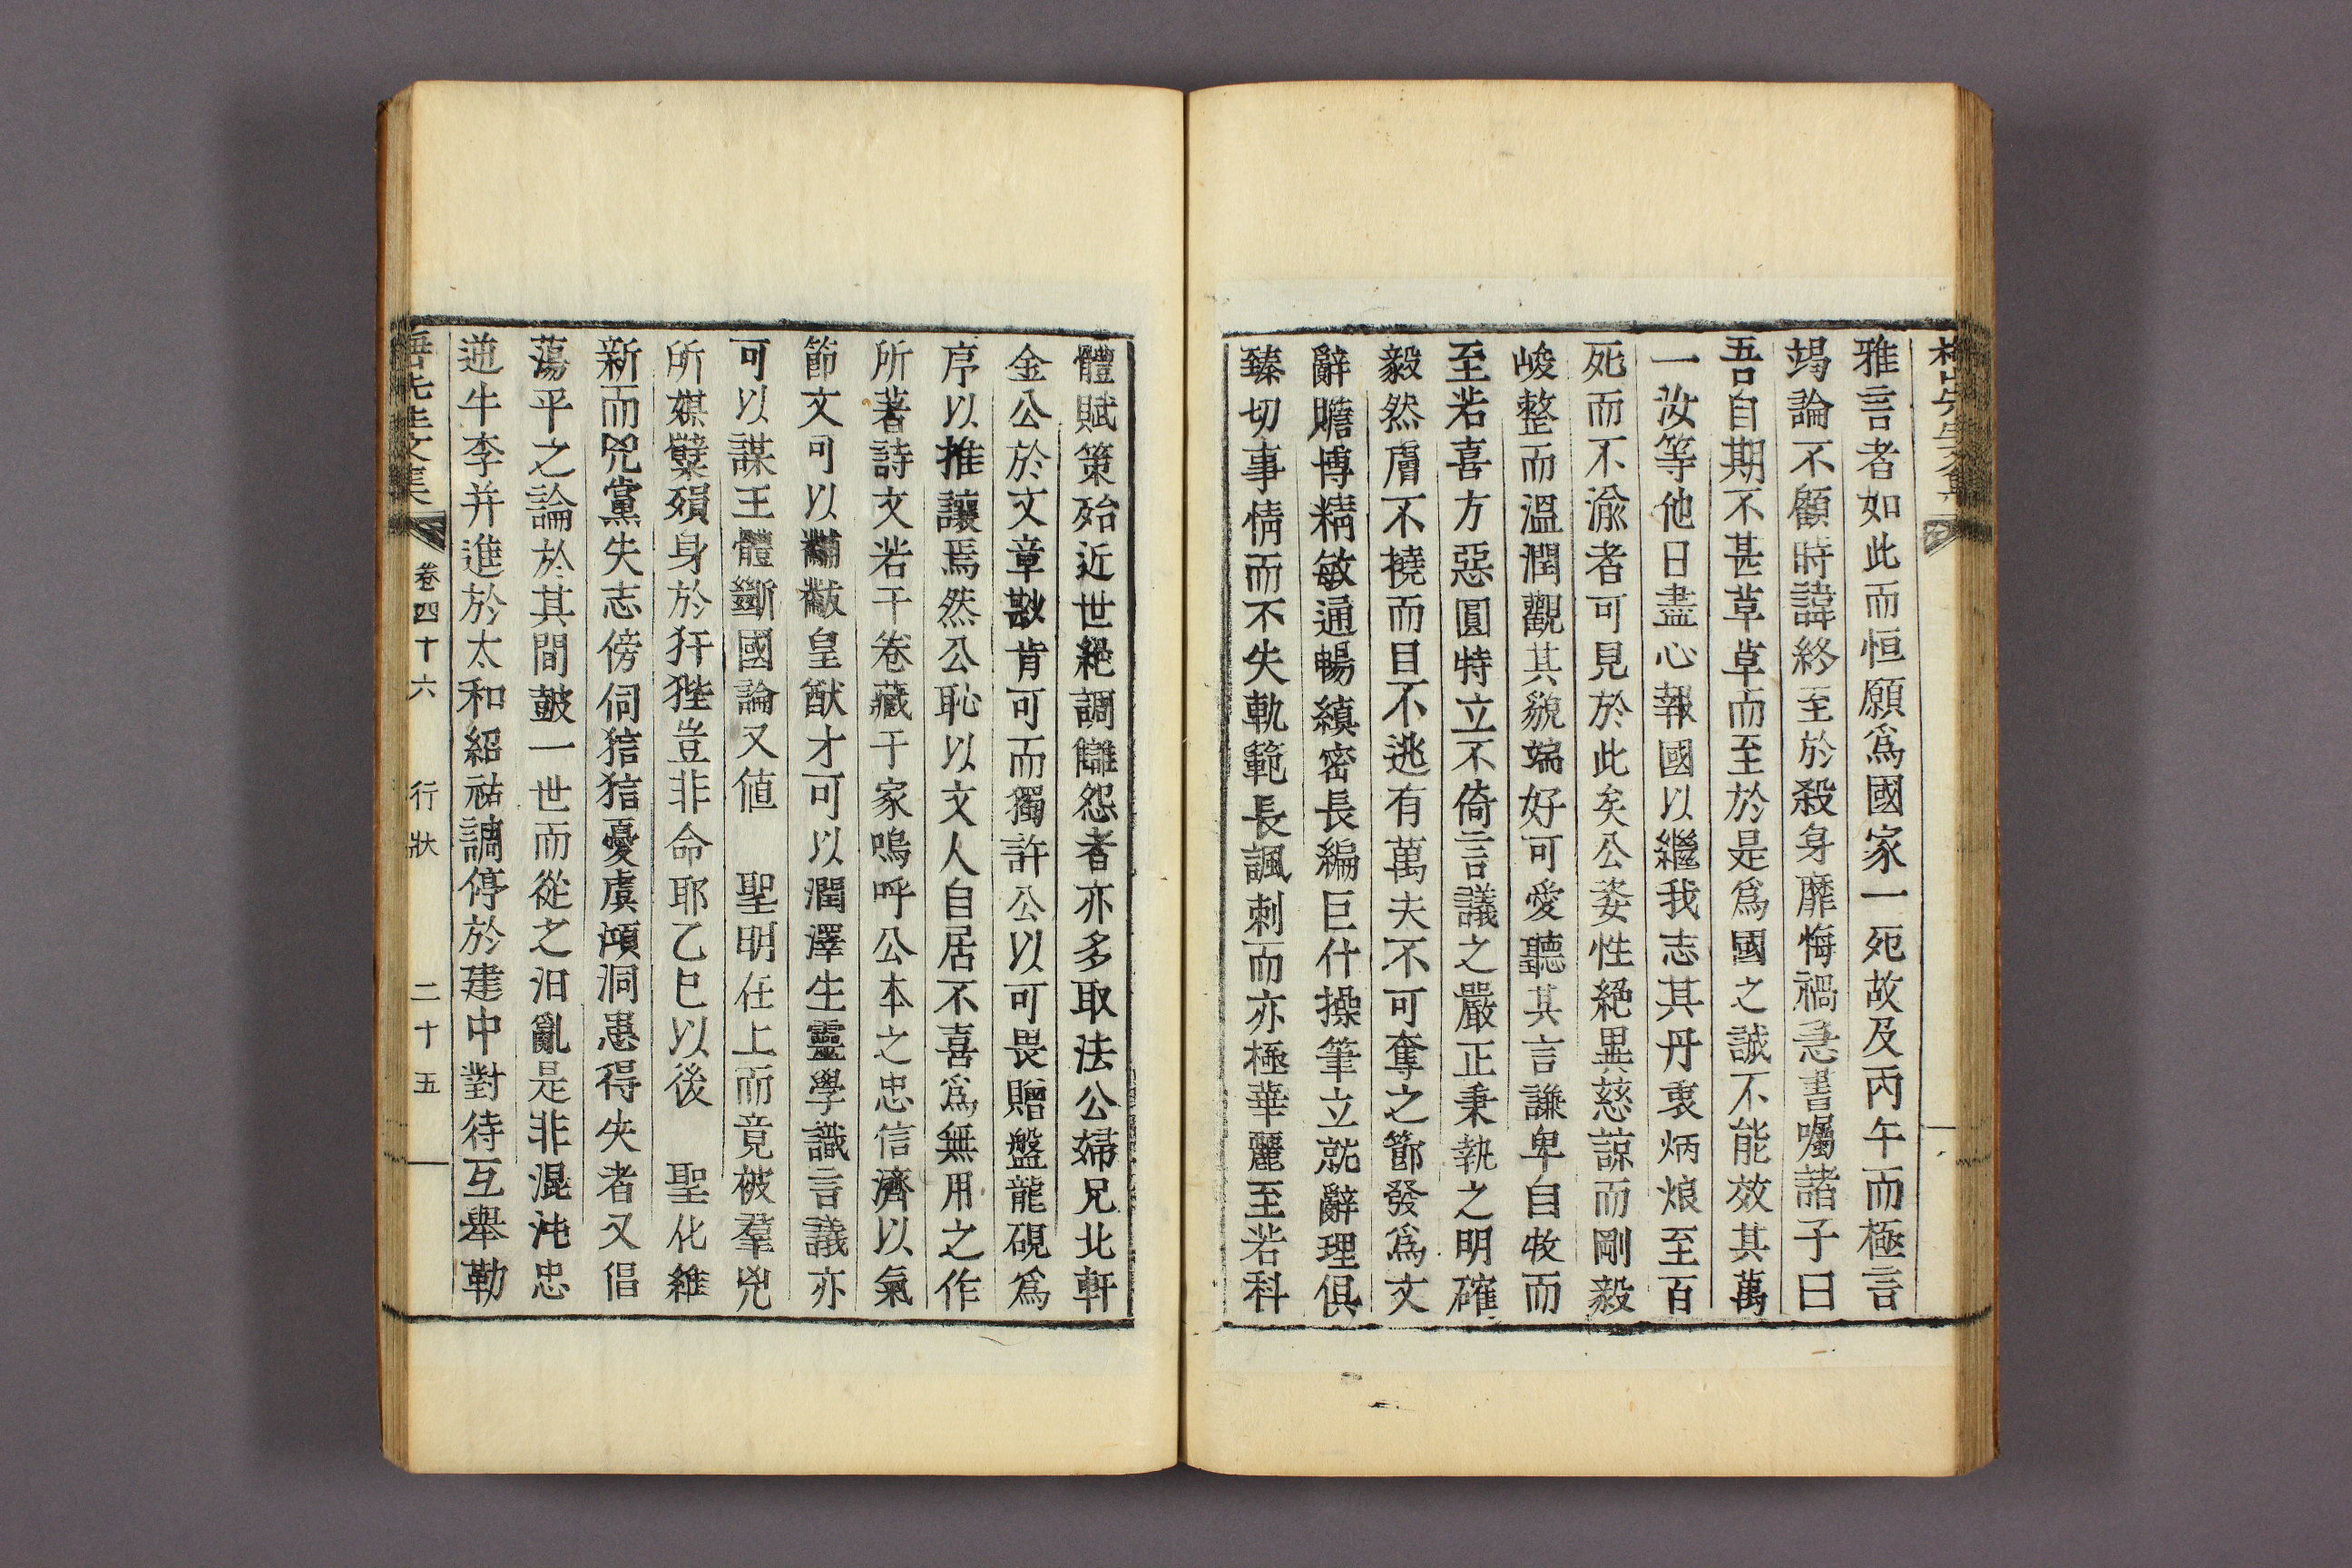 雅言者如此而恒願爲國家一死故及丙午而極言
竭論不顧時諱終至於殺身靡悔禍急書囑諸子曰
吾自期不甚草草而至於是爲國之誠不能效其萬
一汝等他日盡心報國以繼我志其丹衷炳烺至百
死而不渝者可見於此矣公姿性絕異慈諒而剛毅
峻整而溫潤觀其貌端好可愛聽其言謙卑自牧而
至若喜方惡圓特立不倚言議之嚴正秉執之明確
毅然膚不撓而目不逃有萬夫不可奪之節發爲文
辭贍博精敏通暢縝密長編巨什操筆立就辭理俱
臻切事情而不失軌範長諷刺而亦極華麗至若科
體賦策殆近世絕調讎怨者亦多取法公婦兄北軒
金公於文章尠肯可而獨許公以可畏贈盤龍硯爲
序以推讓焉然公恥以文人自居不喜爲無用之作
所著詩文若干卷藏于家嗚呼公本之忠信濟以氣
節文可以黼黻皇猷才可以潤澤生靈學識言議亦
可以謀王體斷國論又値 聖明在上而竟被羣兇
所媒糵殞身於犴狴豈非命耶乙巳以後 聖化維
新而兇黨失志傍伺狺狺憂虞澒洞患得失者又倡
蕩平之論於其間鼓一世而從之汩亂是非混沌忠
逆牛李并進於太和紹祐調停於建中對待互舉勒
先生文集 卷四十六 行狀 二十五